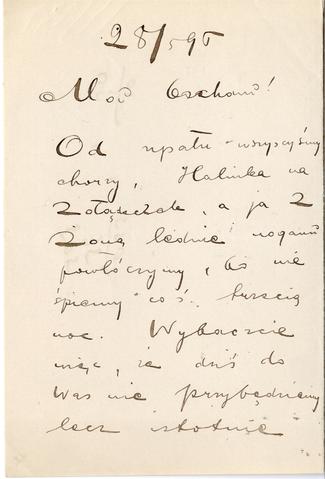 28/5 95
Moi Kochani!
Od upału wszyscyśmy
chorzy, Halinka na
żołądeczek, a ja z
żoną ledwie nogami
powłóczymy, bo nie
śpiemy coś trzecią
noc. Wybaczcie
więc, że dziś do
Was nie przybędziemy
lecz istotnie